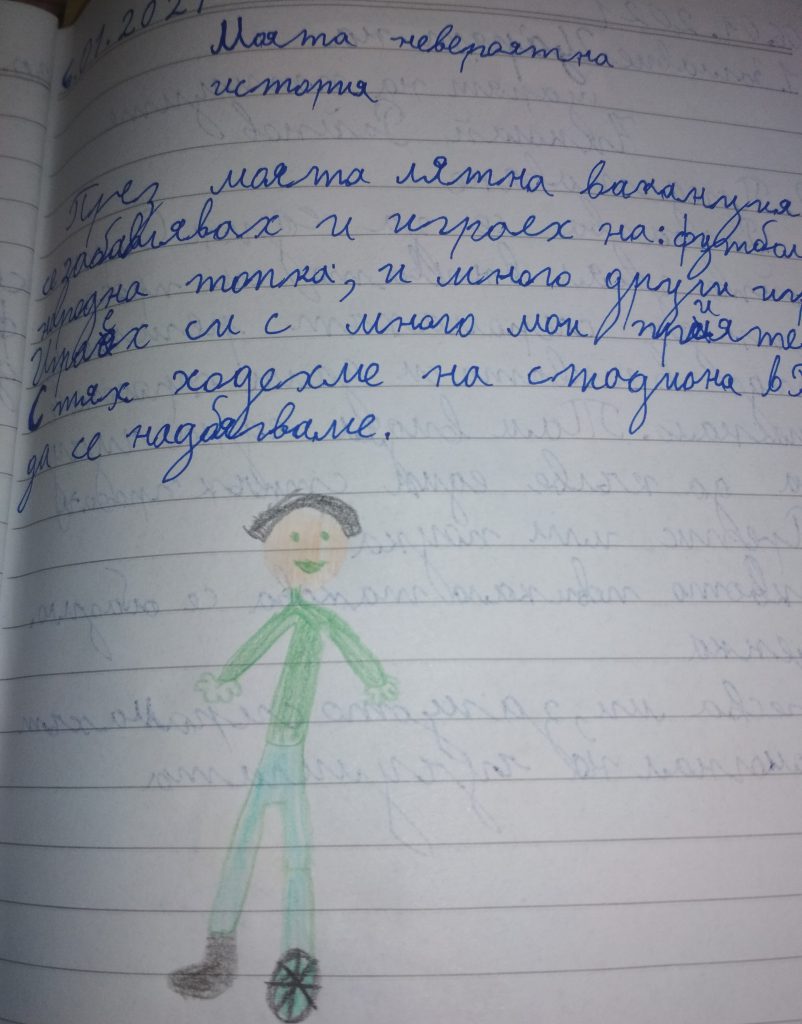 6.01.2021
Моята невероятна
история
През моята лятна ваканция
се забавлявах и играех на: футбол
народна топка, и много други иг
Играех си с много мои прияте
С тях ходехме на стадиона в
да се надбягваме.